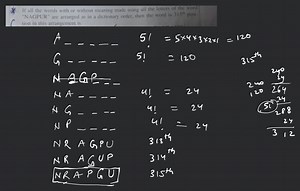 If all the words with or without meaning made using all the letters of the word
"NAGPUR" are arranged as in a dictionary order, then the word at 315th posi-
tion in this arrangement is
A _ _ _ _ _ 5! = 5×4×3×2×1 = 120
G _ _ _ _ _ 5! = 120 315th
N A G P
N A _ _ _ _ 4! = 24
N G _ _ _ _ 4! = 24
N P _ _ _ _ 4! = 24
N R A G P U 313th
N R A G U P 314th
N R A P G U 315th
240
24
240
120 264
5! 24
288
24
312